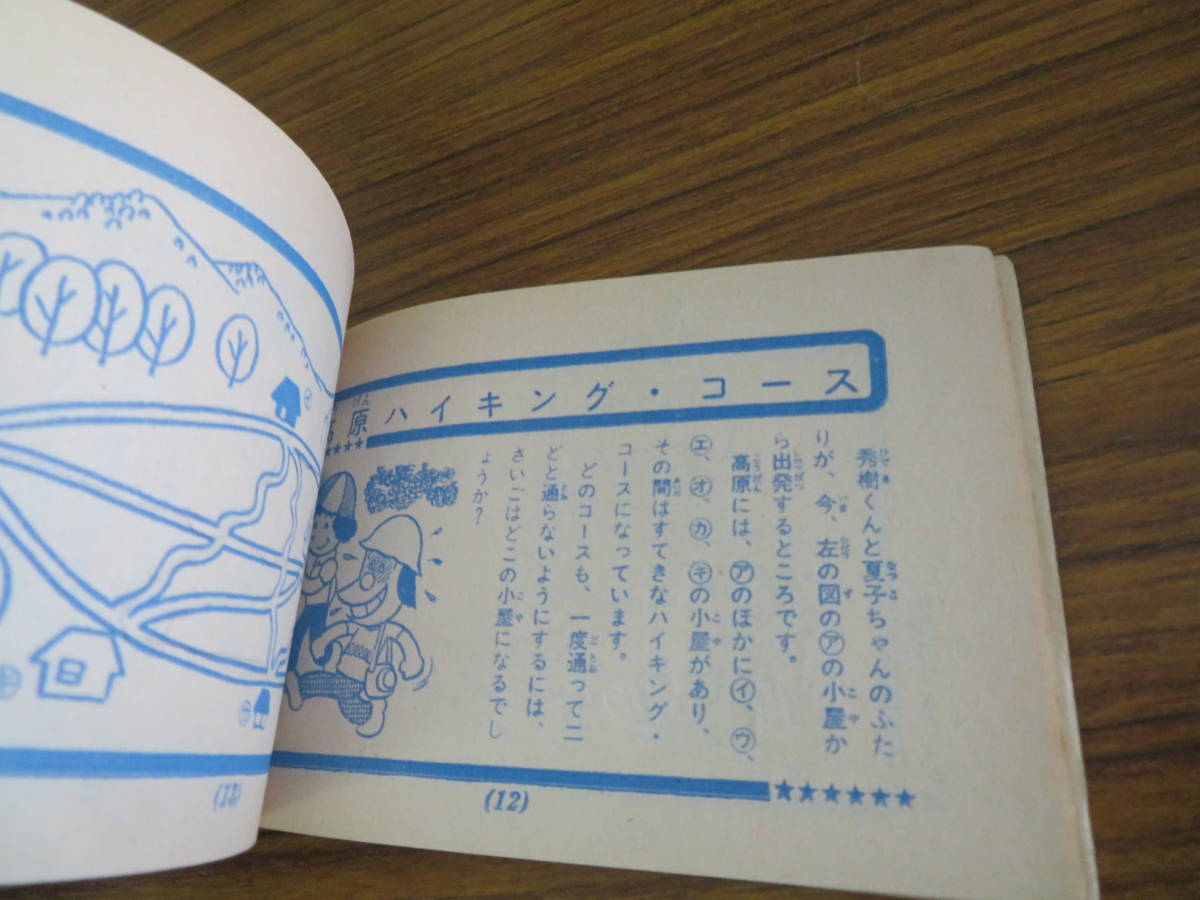 原ハイキング・コース
げん
秀樹くんと夏子ちゃんのふた
りが、今、左の図の㋐の小屋か
ら出発するところです。
高原には、㋐のほかに㋑、㋒、
㋓、㋔、㋕、㋖の小屋があり、
その間はすてきなハイキング・
コースになっています。
どのコースも、一度通って二
どと通らないようにするには、
さいごはどこの小屋になるでし
ょうか?
(12)
(13)